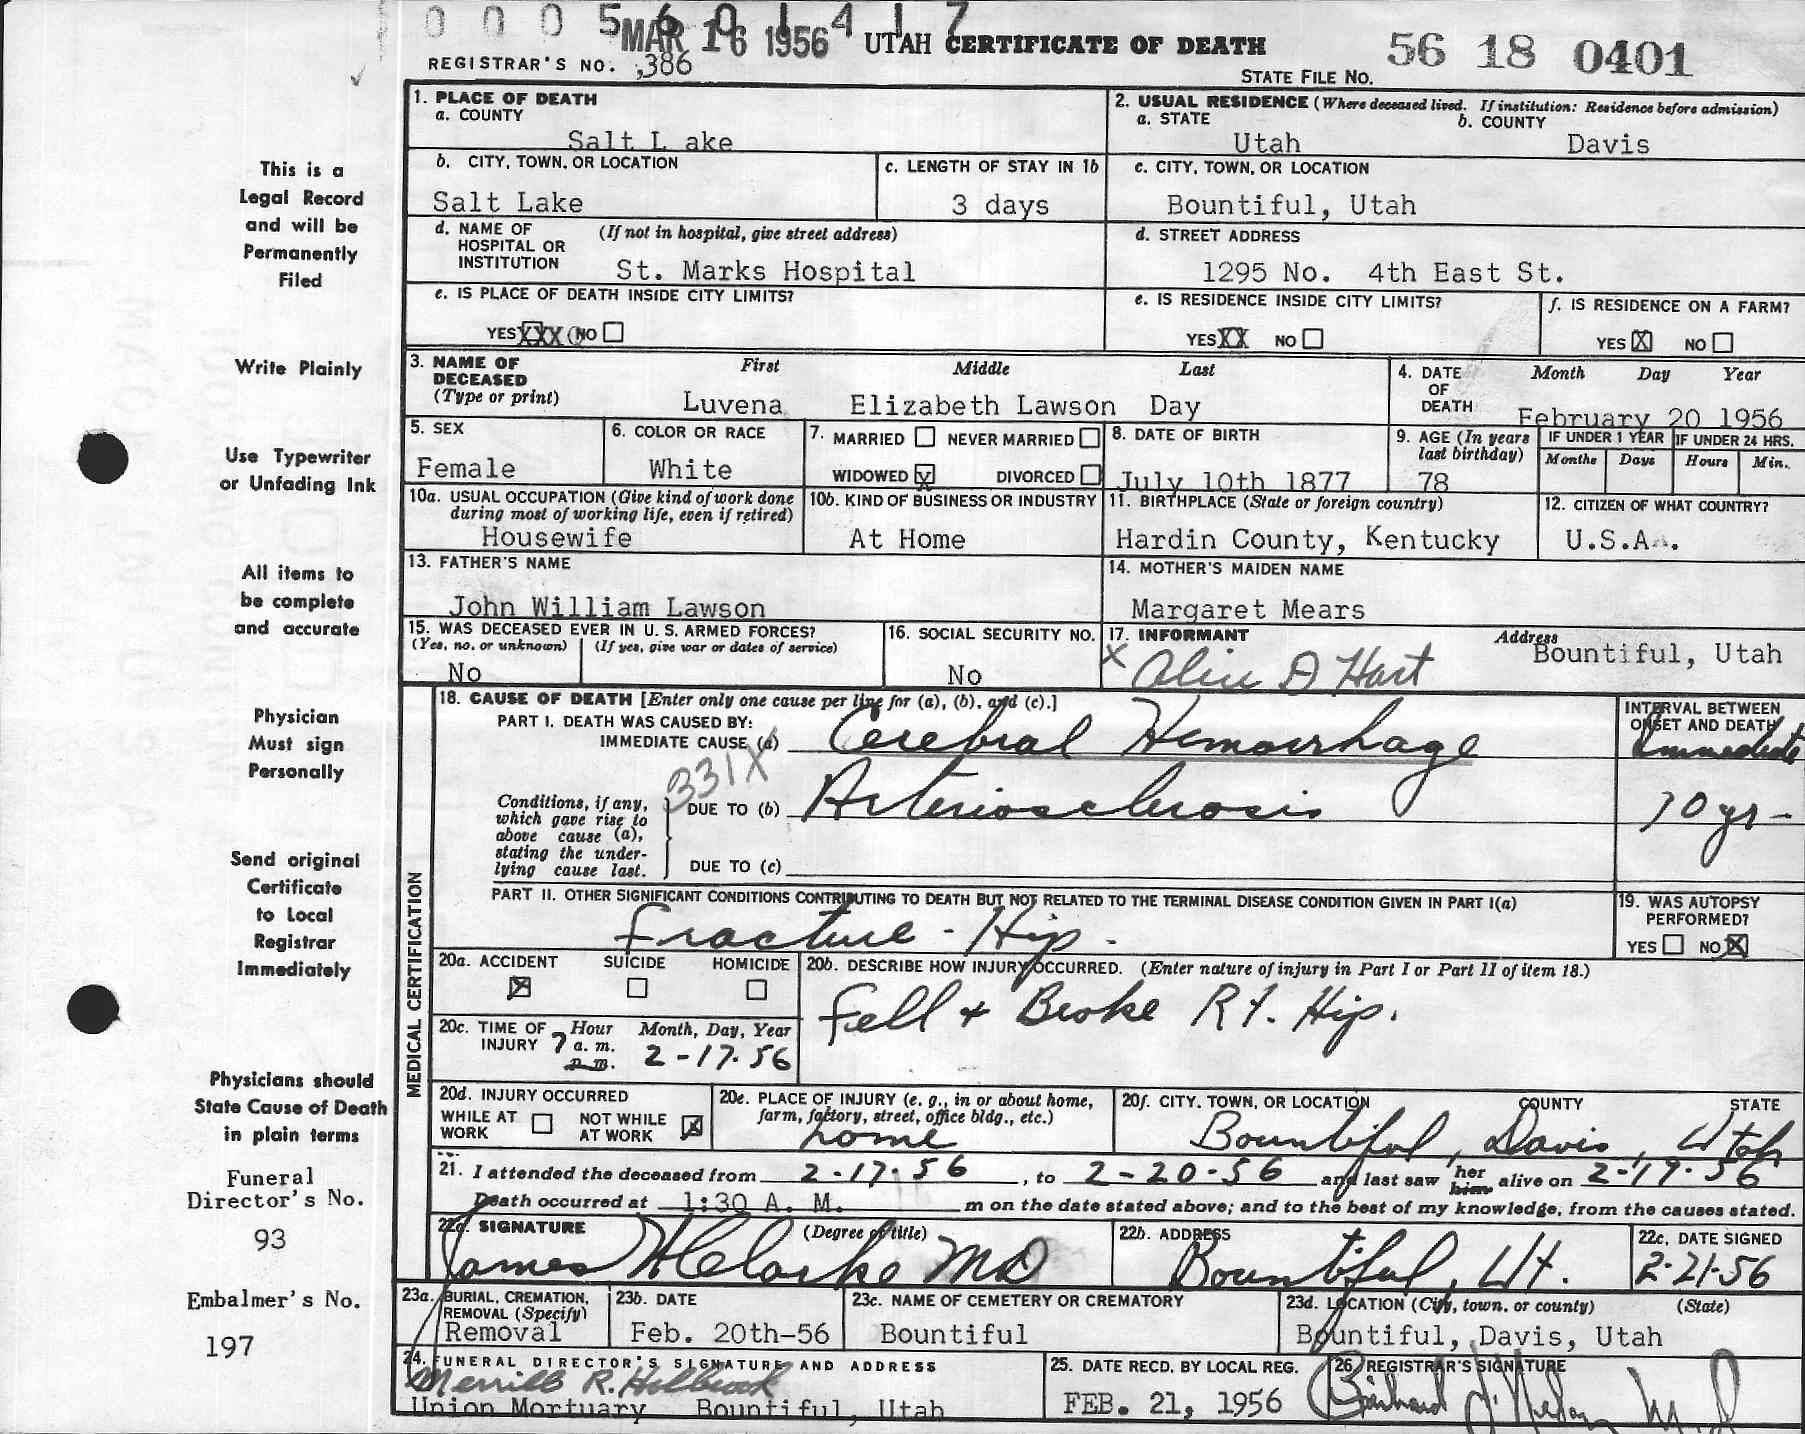 0 0 0 5 6 0 1 4 1 7
MAR 16 1956
UTAH CERTIFICATE OF DEATH
56 18 0401
REGISTRAR'S NO. 386
STATE FILE NO.
This is a
Legal Record
and will be
Permanently
Filed
Write Plainly
Use Typewriter
or Unfading Ink
All items to
be complete
and accurate
Physician
Must sign
Personally
Send original
Certificate
to Local
Registrar
Immediately
Physicians should
State Cause of Death
in plain terms
Funeral
Director's No.
93
Embalmer's No.
197
1. PLACE OF DEATH
a. COUNTY
Salt L ake
2. USUAL RESIDENCE (Where deceased lived. If institution: Residence before admission)
a. STATE b. COUNTY
Utah Davis
b. CITY, TOWN, OR LOCATION
Salt Lake
c. LENGTH OF STAY IN 1b
3 days
c. CITY, TOWN, OR LOCATION
Bountiful, Utah
d. NAME OF (If not in hospital, give street address)
HOSPITAL OR
INSTITUTION St. Marks Hospital
d. STREET ADDRESS
1295 No. 4th East St.
e. IS PLACE OF DEATH INSIDE CITY LIMITS?
YES XXX NO
e. IS RESIDENCE INSIDE CITY LIMITS?
YES XX NO
f. IS RESIDENCE ON A FARM?
YES X NO
3. NAME OF First Middle Last
DECEASED
(Type or print) Luvena Elizabeth Lawson Day
4. DATE Month Day Year
OF
DEATH February 20 1956
5. SEX
Female
6. COLOR OR RACE
White
7. MARRIED NEVER MARRIED
WIDOWED X DIVORCED
8. DATE OF BIRTH
July 10th 1877
9. AGE (In years
last birthday)
78
IF UNDER 1 YEAR IF UNDER 24 HRS.
Months Days Hours Min.
10a. USUAL OCCUPATION (Give kind of work done
during most of working life, even if retired)
Housewife
10b. KIND OF BUSINESS OR INDUSTRY
At Home
11. BIRTHPLACE (State or foreign country)
Hardin County, Kentucky
12. CITIZEN OF WHAT COUNTRY?
U.S.A.
13. FATHER'S NAME
John William Lawson
14. MOTHER'S MAIDEN NAME
Margaret Mears
15. WAS DECEASED EVER IN U. S. ARMED FORCES?
(Yes, no. or unknown) (If yes, give war or dates of service)
No
16. SOCIAL SECURITY NO.
No
17. INFORMANT Address
X Alice D Hart Bountiful, Utah
MEDICAL CERTIFICATION
18. CAUSE OF DEATH [Enter only one cause per line for (a), (b), and (c).]
PART I. DEATH WAS CAUSED BY:
IMMEDIATE CAUSE (a) Cerebral Hemorrhage
331X
Conditions, if any,
which gave rise to
above cause (a),
stating the under-
lying cause last.
DUE TO (b) Arteriosclerosis
DUE TO (c)
INTERVAL BETWEEN
ONSET AND DEATH
Immediate
10 yr-
PART II. OTHER SIGNIFICANT CONDITIONS CONTRIBUTING TO DEATH BUT NOT RELATED TO THE TERMINAL DISEASE CONDITION GIVEN IN PART I(a)
Fracture - Hip.
19. WAS AUTOPSY
PERFORMED?
YES NO X
20a. ACCIDENT SUICIDE HOMICIDE
X
20b. DESCRIBE HOW INJURY OCCURRED. (Enter nature of injury in Part I or Part II of item 18.)
Fell + Broke Rt. Hip.
20c. TIME OF Hour Month, Day, Year
INJURY 7 a. m.
p. m. 2-17-56
20d. INJURY OCCURRED
WHILE AT NOT WHILE
WORK AT WORK X
20e. PLACE OF INJURY (e. g., in or about home,
farm, factory, street, office bldg., etc.)
home
20f. CITY, TOWN, OR LOCATION COUNTY STATE
Bountiful, Davis, Utah
21. I attended the deceased from 2-17-56, to 2-20-56 and last saw her him alive on 2-19-56
Death occurred at 1:30 A. M. m on the date stated above; and to the best of my knowledge, from the causes stated.
22a. SIGNATURE (Degree or title)
James H Clarke MD
22b. ADDRESS
Bountiful, Ut.
22c. DATE SIGNED
2-21-56
23a. BURIAL, CREMATION,
REMOVAL (Specify)
Removal
23b. DATE
Feb. 20th-56
23c. NAME OF CEMETERY OR CREMATORY
Bountiful
23d. LOCATION (City, town. or county) (State)
Bountiful, Davis, Utah
24. FUNERAL DIRECTOR'S SIGNATURE AND ADDRESS
Merrill R. Holbrook
Union Mortuary Bountiful, Utah
25. DATE RECD. BY LOCAL REG.
FEB. 21, 1956
26. REGISTRAR'S SIGNATURE